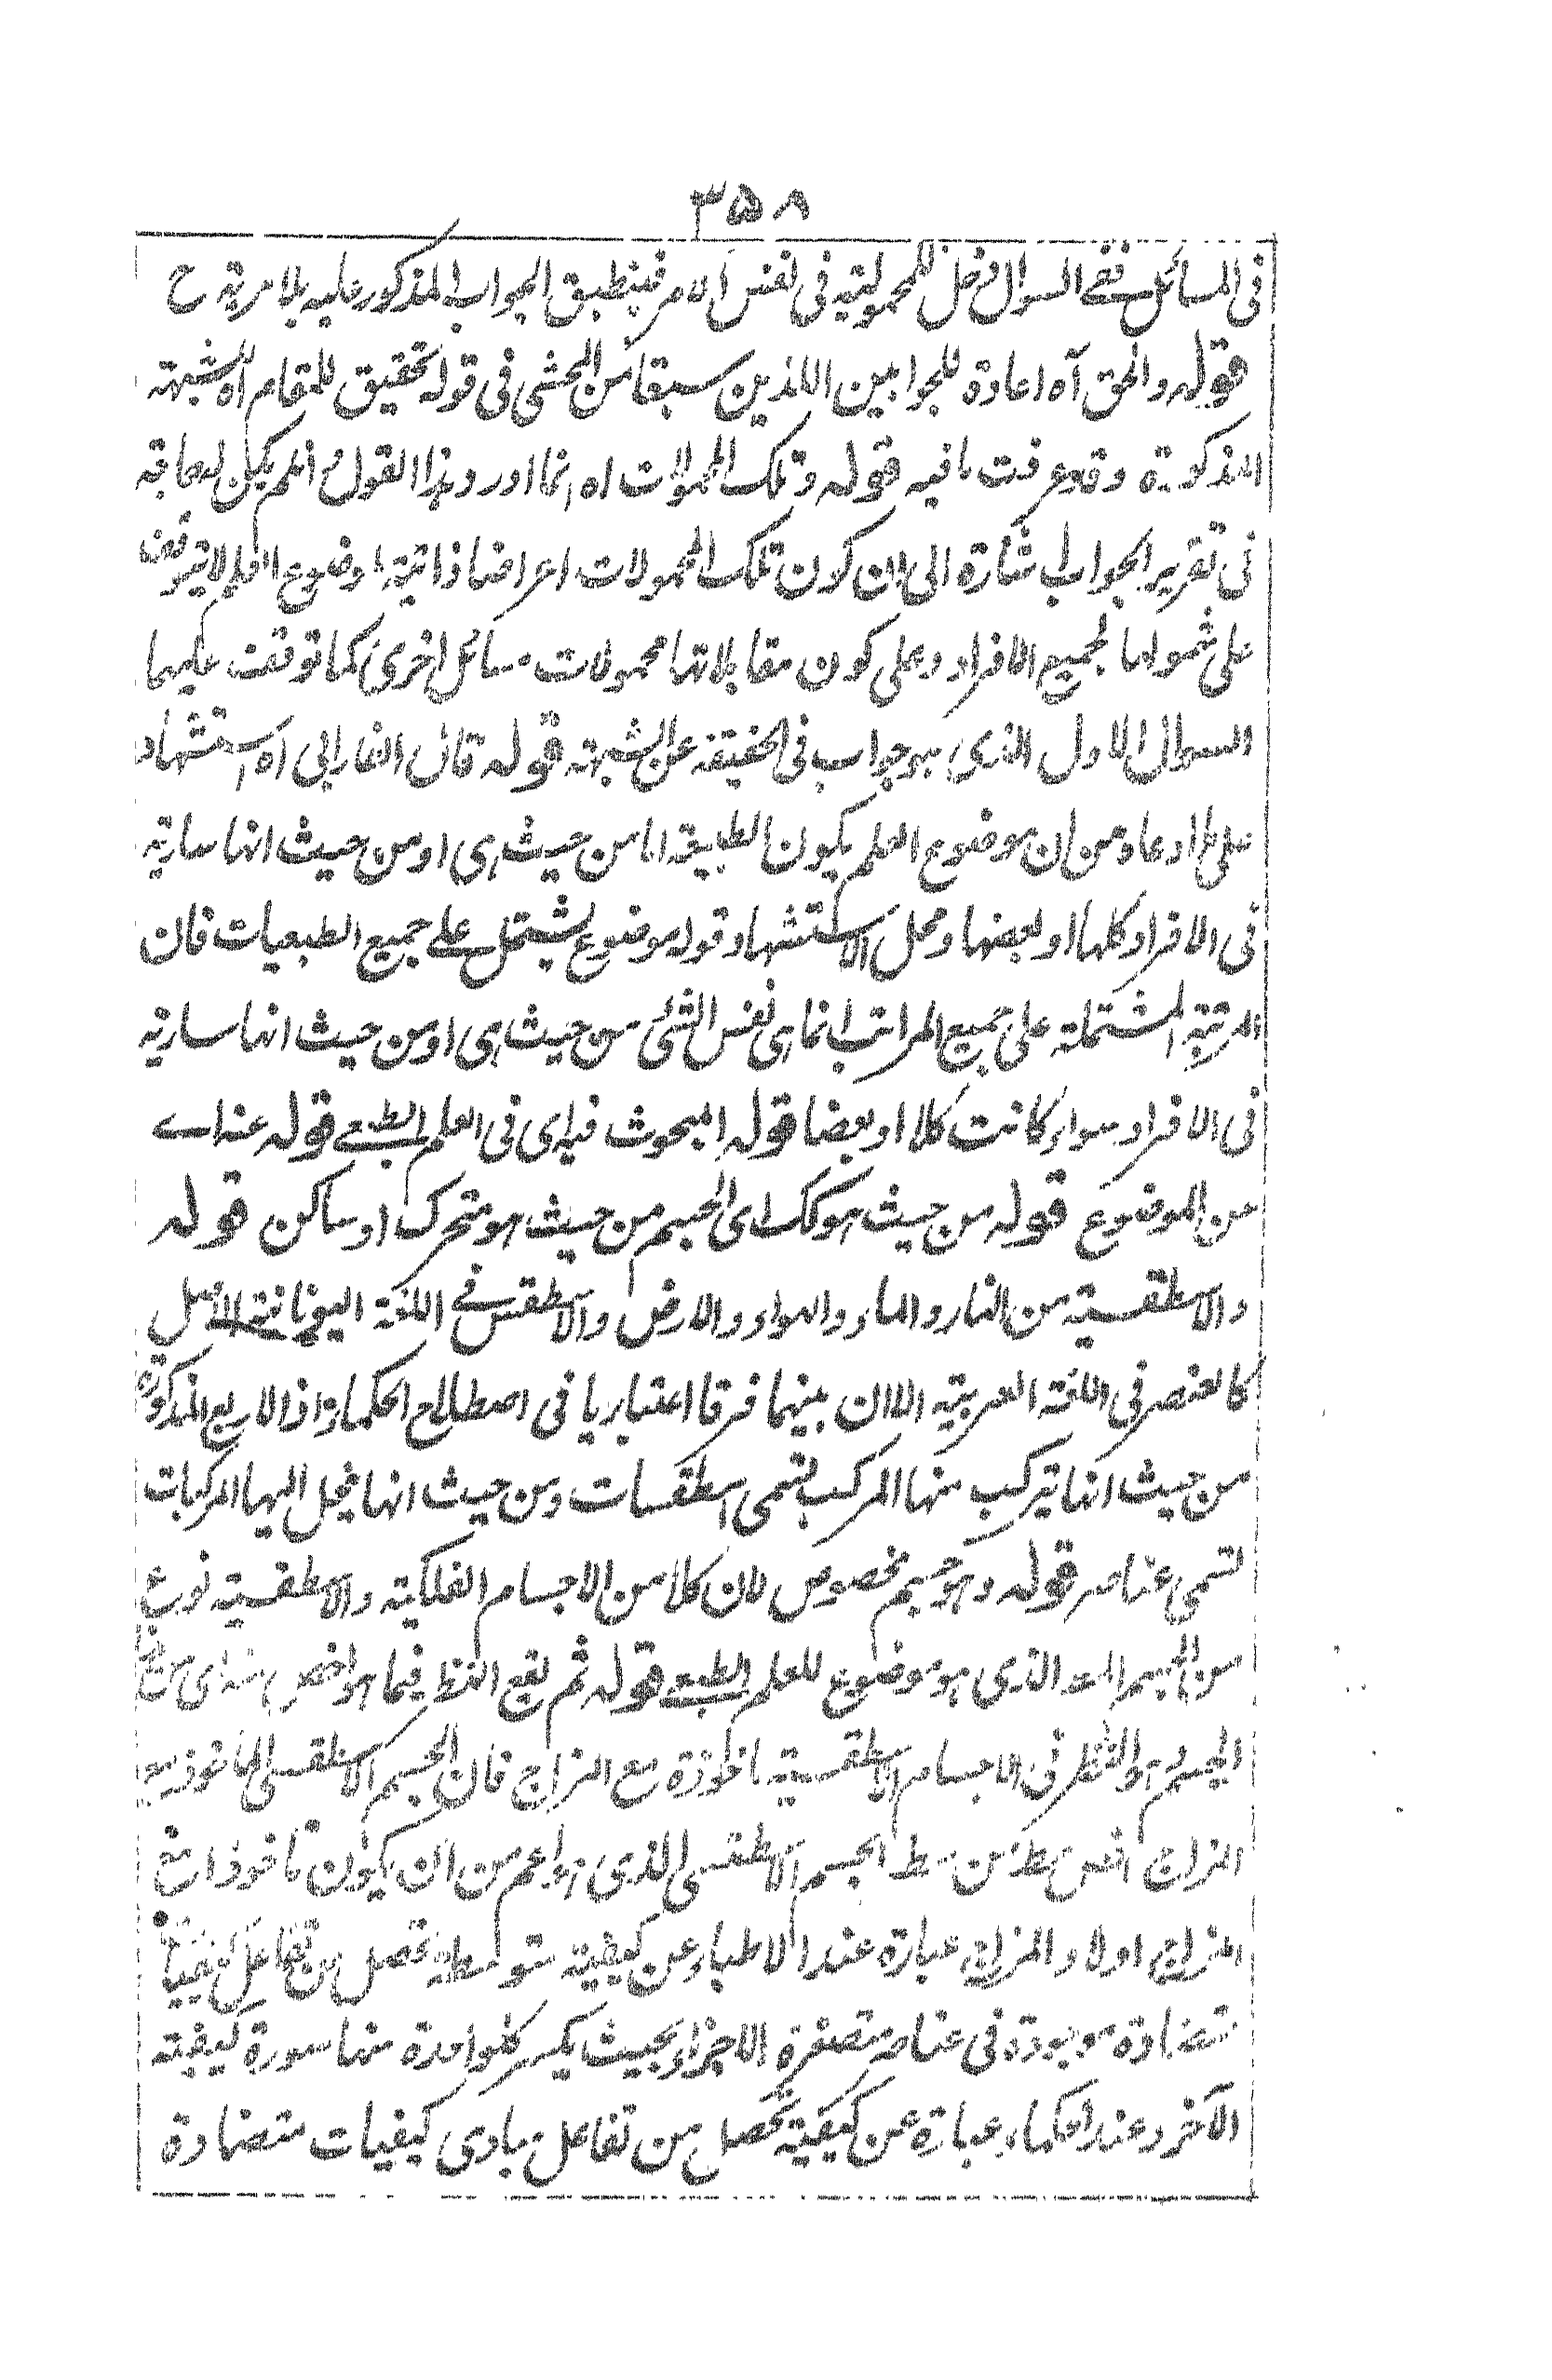 ۳۵۸
فی المسائل ففی السوال فرض للمحمولیة فی نفس الامر فینطبق الجواب المذکور علیه بلا مریة ح
قوله والحق آه اعادة للجوابین اللذین سبقا من المحشی فی قوله تحقیق للمقام آه للشبهة
المذکورة وقد عرفت ما فیه قوله وتلک المحمولات اه انما اورد هذا القول وان لم یکن له علاقة
فی تقریر الجواب اشارة الی ان کون تلک المحمولات اعراضا ذاتیة لموضوع العلم لا یتوقف
علی شمولها لجمیع الافراد وعلی کون مقابلاتها محمولات مسائل اخری کما توقفت علیهما
السوال الاول الذی هو جواب فی الحقیقة عن الشبهة قوله قال الفارابی آه استشهاد
علی ما ادعاه من ان موضوع العلم یکون الطبیعة اما من حیث هی او من حیث انها ساریة
فی الافراد کلها او بعضها ومحل الاستشهاد قوله موضوع یشتمل علی جمیع الطبعیات فان
المرتبة المشتملة علی جمیع المراتب انما هی نفس الشئ من حیث هی او من حیث انها ساریة
فی الافراد سواء کانت کلا او بعضا قوله المبحوث فیه ای فی العلم الطبعی قوله عنه ای
من الموضوع قوله من حیث هو کک ای الجسم من حیث هو متحرک او ساکن قوله
والاسطقسیة من النار والماء والهواء والارض والاسطقس فی اللغة الیونانیة الاصل
کالعنصر فی اللغة العربیة الا ان بینهما فرقا اعتباریا فی اصطلاح الحکماء اذ الاربع المذکورة
من حیث انها یترکب منها المرکب تسمی اسطقسات ومن حیث انها ینحل الیها المرکبات
تسمی عناصر قوله وهو جسم مخصوص لان کلا من الاجسام الفلکیة والاسطقسیة نوع
من الجسم الذی هو موضوع للعلم الطبعی قوله ثم یقع النظر فیما هو اخص منه ای من
الجسم وهو النظر فی الاجسام الاسطقسیة ماخوذة مع المزاج فان الجسم الاسطقسی الماخوذ مع
المزاج اخص من الجسم الاسطقسی الذی هو اعم من ان یکون ماخوذا مع
المزاج اولا والمزاج عبارة عند الاطباء عن کیفیة متوسطة تحصل من تفاعل کیفیات
متضادة موجودة فی عناصر متصغرة الاجزاء بحیث یکسر کل واحدة منها سورة کیفیة
الآخر وعند الحکماء عبارة عن کیفیة تحصل من تفاعل مبادی کیفیات متضادة